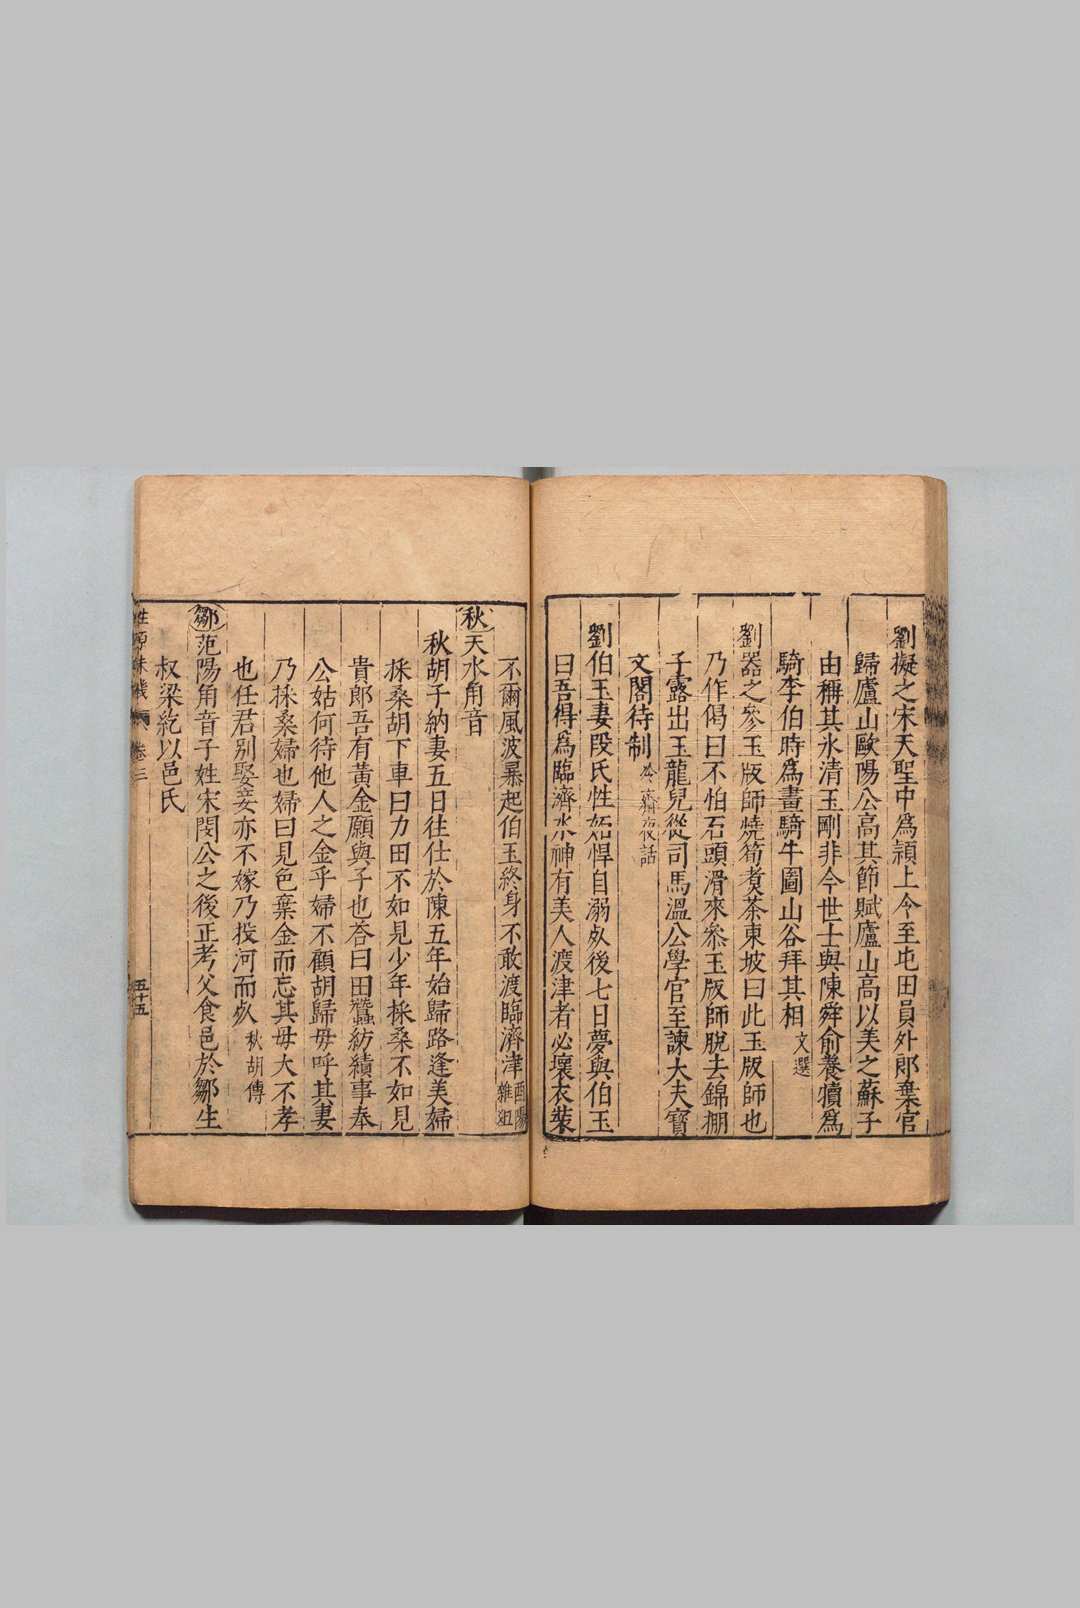 劉擬之宋天聖中爲潁上今至屯田員外郎棄官
歸廬山歐陽公高其節賦廬山高以美之蘇子
由稱其氷清玉剛非今世士與陳舜俞養犢爲
騎李伯時爲畫騎牛圖山谷拜其相文選
劉器之參玉版師燒筍煑茶東坡曰此玉版師也
乃作偈曰不怕石頭滑來叅玉版師脫去錦棚
子露出玉龍兒從司馬溫公學官至諫大夫寳
文閣待制冷齋夜話
劉伯玉妻段氏性妬悍自溺㱕後七日夢與伯玉
曰吾得爲臨濟水神有美人渡津者必壞衣裝
不爾風波暴起伯玉終身不敢渡臨濟津酉陽雜俎
秋天水角音
秋胡子納妻五日往仕於陳五年始歸路逢美婦
採桑胡下車曰力田不如見少年採桑不如見
貴郎吾有黃金願與子也荅曰田蠶紡績事奉
公姑何待他人之金乎婦不顧胡歸母呼其妻
乃採桑婦也婦曰見色棄金而忘其母大不孝
也任君别娶妾亦不嫁乃投河而㱕秋胡傳
鄒范陽角音子姓宋閔公之後正考父食邑於鄒生
叔梁紇以邑氏
卷三
五十五